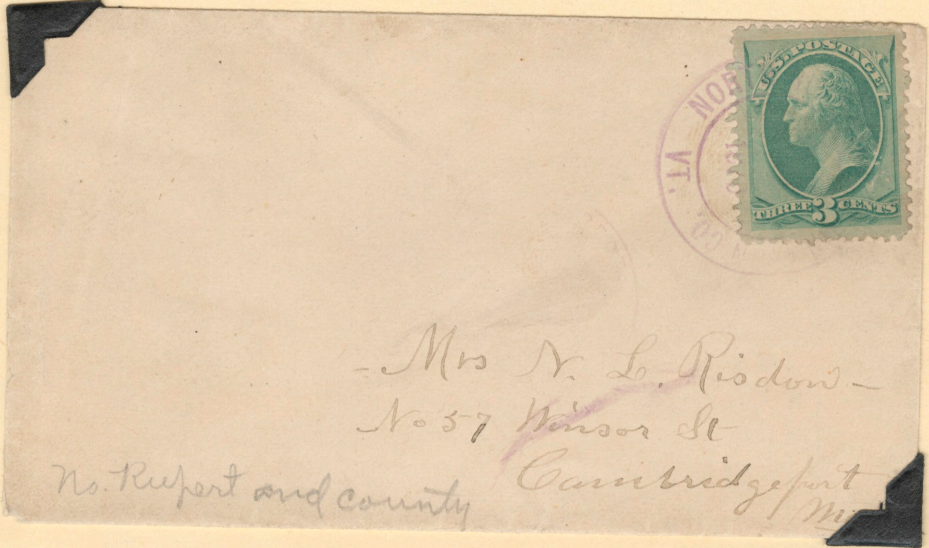 U.S. POSTAGE
THREE 3 CENTS
NOR
VT.
CO.
- Mrs N. L. Risdon -
No 57 Winsor St
Cambridgeport
No. Rupert and county